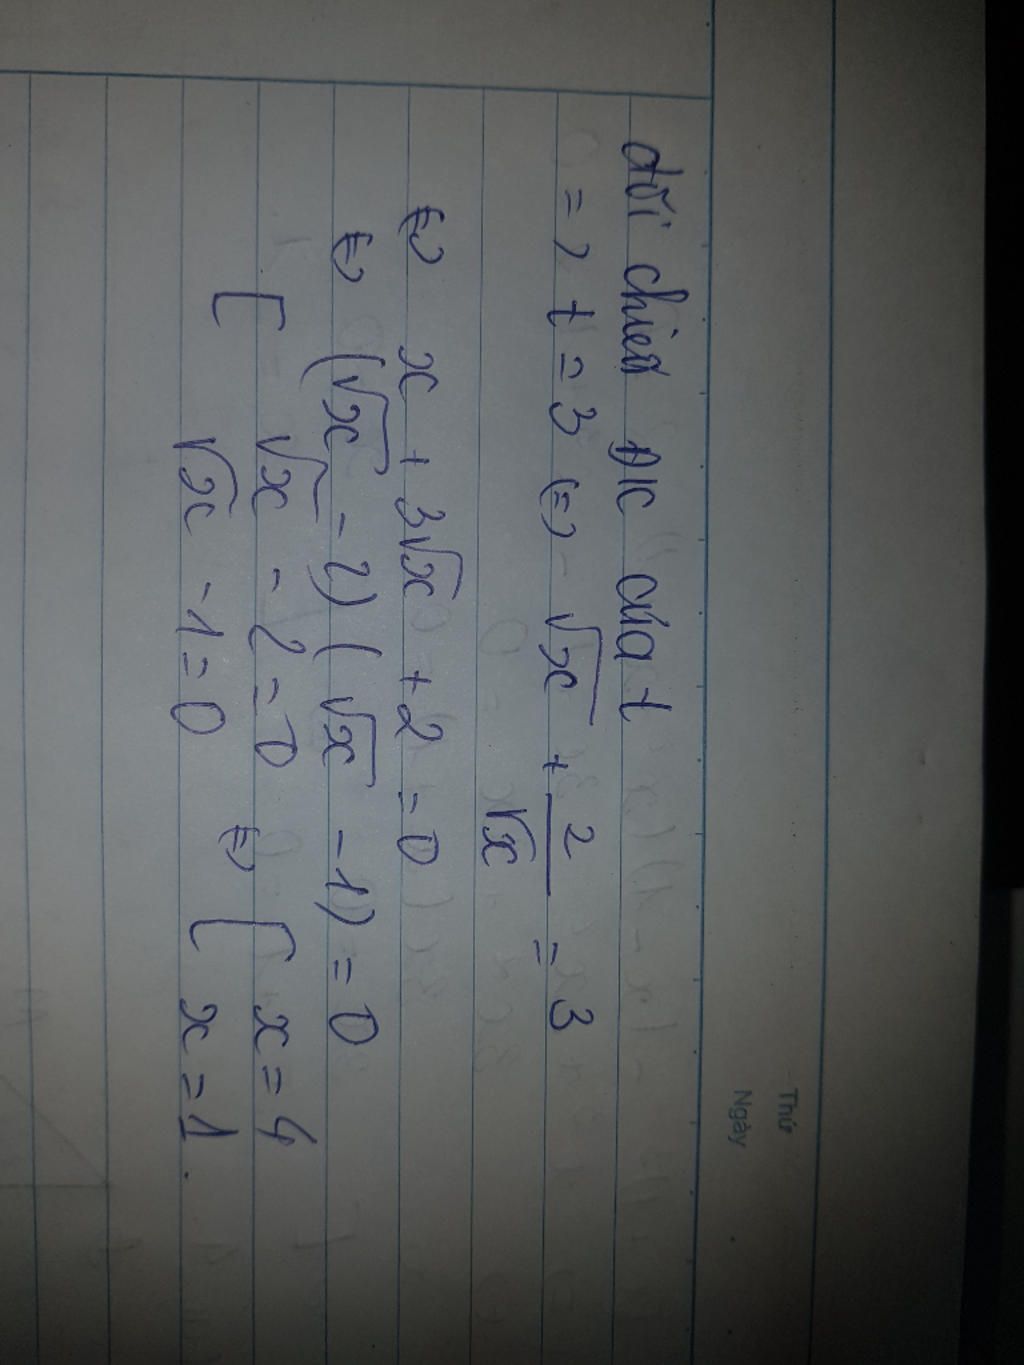 Thứ
Ngày
đối chiếu ĐK của t
=> t = 3 (=) √x + 2/√x = 3
(=) x + 3√x + 2 = 0
(=) (√x - 2) (√x - 1) = 0
[ √x - 2 = 0
√x - 1 = 0 (=) [ x = 4
x = 1.